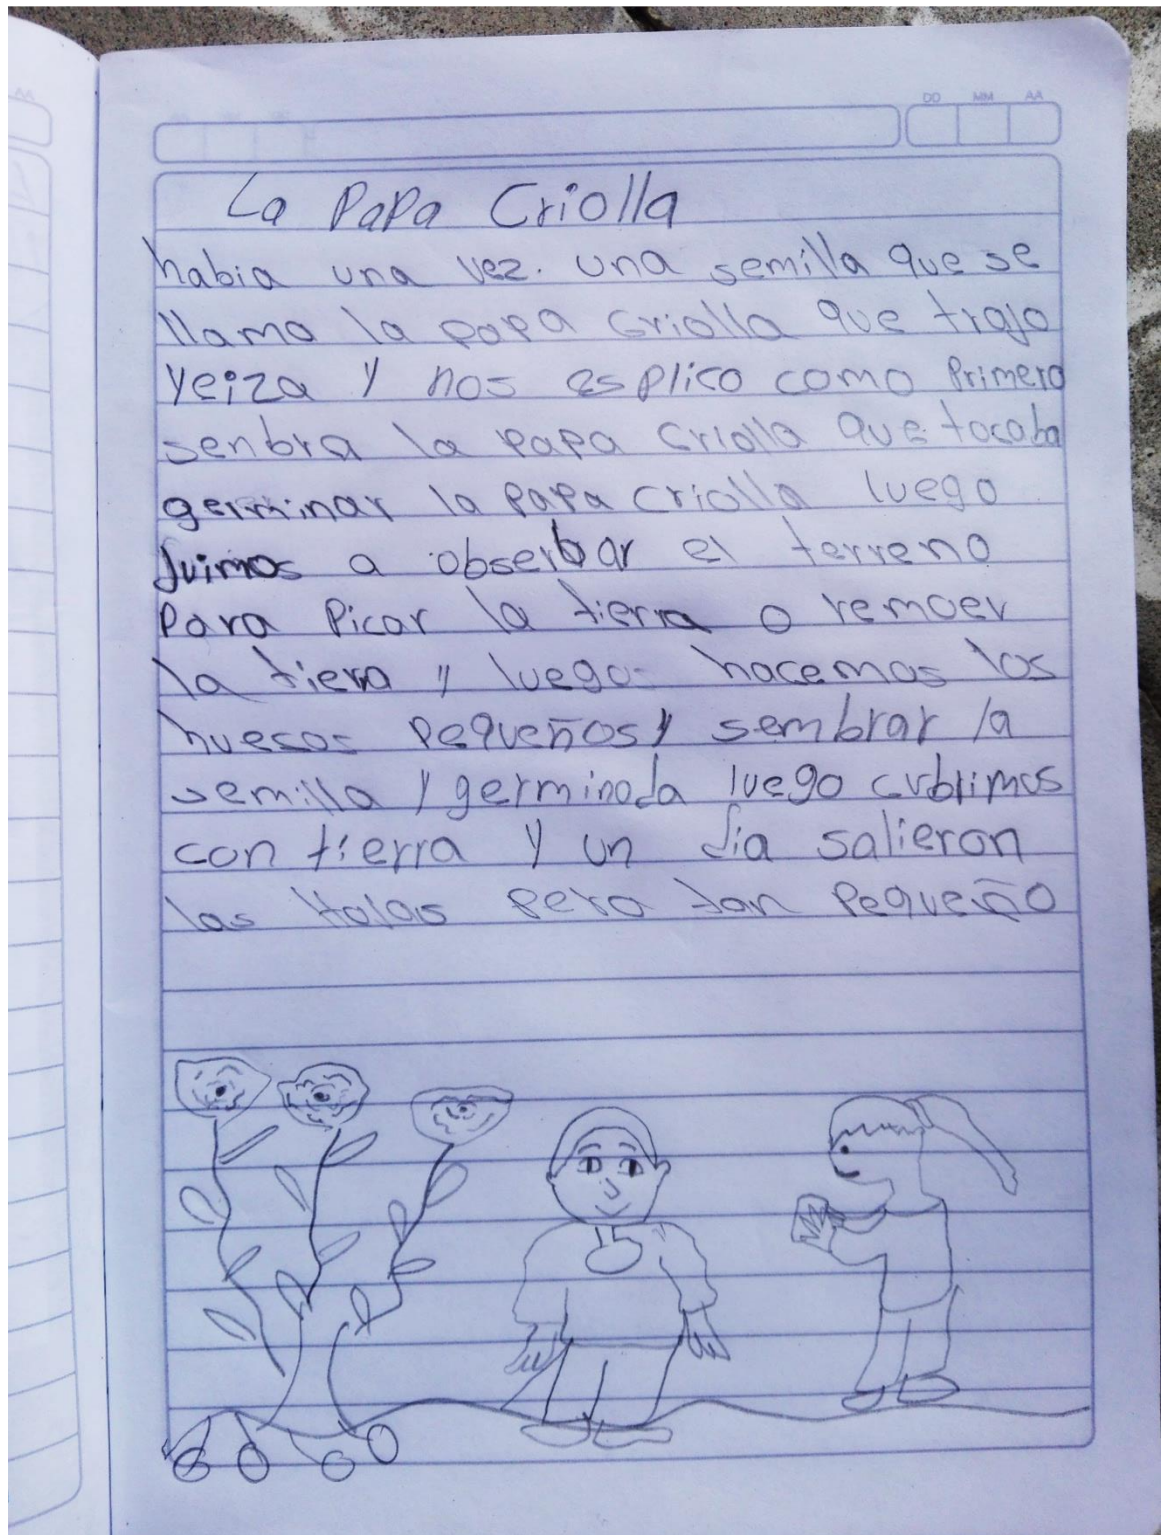 DD MM AA
La Papa Criolla
habia una vez. una semilla que se
llamo la papa criolla que trajo
Yeiza y nos esplico como Primero
senbra la papa criolla que tocaba
germinar la papa criolla luego
fuimos a obserbar el terreno
Para Picar la tierra o remoer
la tiera y luego hacemos los
huesos pequeños y sembrar la
semilla y germinada luego cubrimos
con tierra y un dia salieron
las pero tan Pequeño